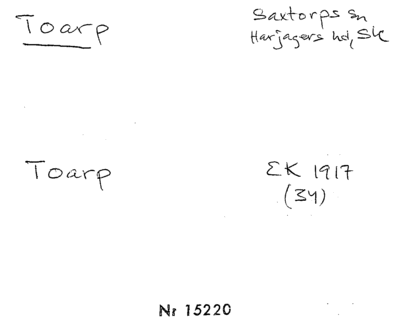 Toarp
Saxtorps sn
Harjagers hd, Sk
Toarp
EK 1917
(34)
Nr 15220